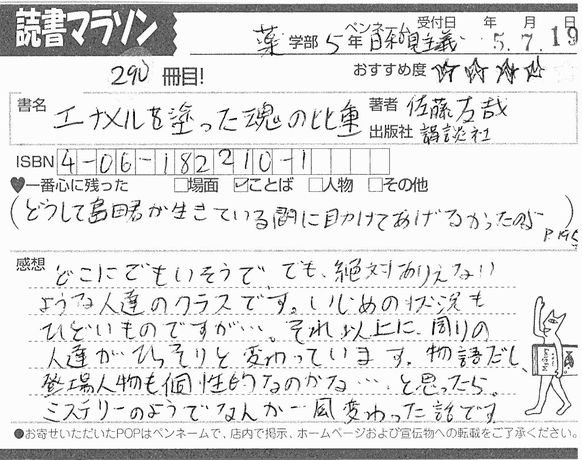 読書マラソン
薬 学部 5 年 ペンネーム 日和見主義 受付日 5.年 7.月 19日
290 冊目! おすすめ度 ☆☆☆☆
書名 エナメルを塗った魂の比重 著者 佐藤友哉
出版社 講談社
ISBN 4-06-182210-1
♥一番心に残った □場面 ☑ことば □人物 □その他
(どうして島田君が生きている間に助けてあげなかったのよ P195
感想 どこにでもいそうで、でも、絶対ありえない
ような人達のクラスです。いじめの状況も
ひどいものですが…。それ以上に、周りの
人達がひっそりと変わっています。物語だし、
登場人物も個性的なのかな…、と思ったら。
ミステリーのようでなんか一風変わった話です
●お寄せいただいたPOPはペンネームで、店内で掲示、ホームページおよび宣伝物への転載をご了承ください。